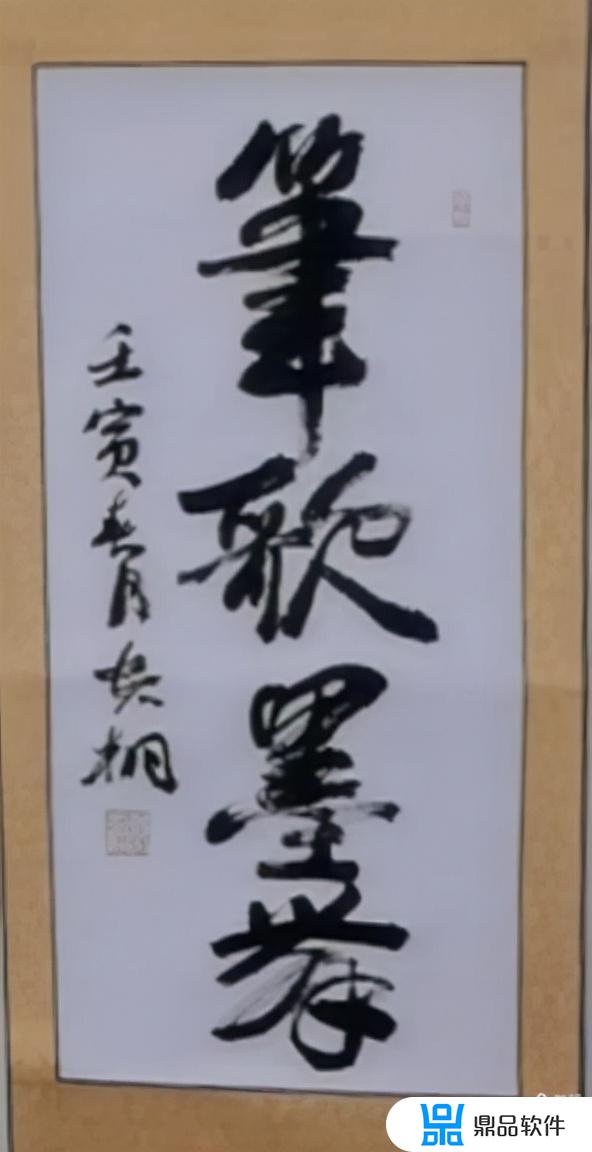 筆歌墨舞
壬寅春月吴桐
鼎品软件